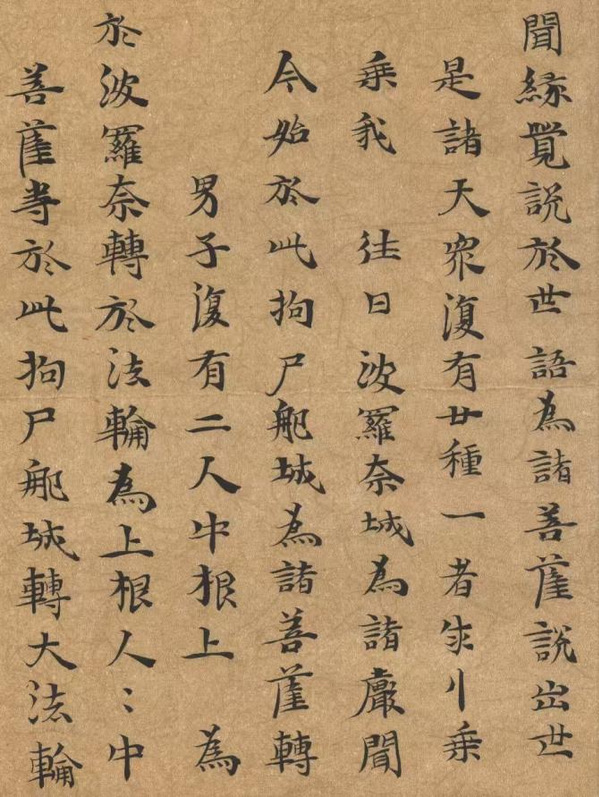 聞緣覺說於世語為諸菩薩說出世
是諸天衆復有廿種一者求小乘
乗我 往日波羅奈城為諸聲聞
今始於此拘尸那城為諸菩薩轉
男子復有二人中根上 為
於波羅奈轉於法輪為上根人〻中
菩薩等於此拘尸那城轉大法輪